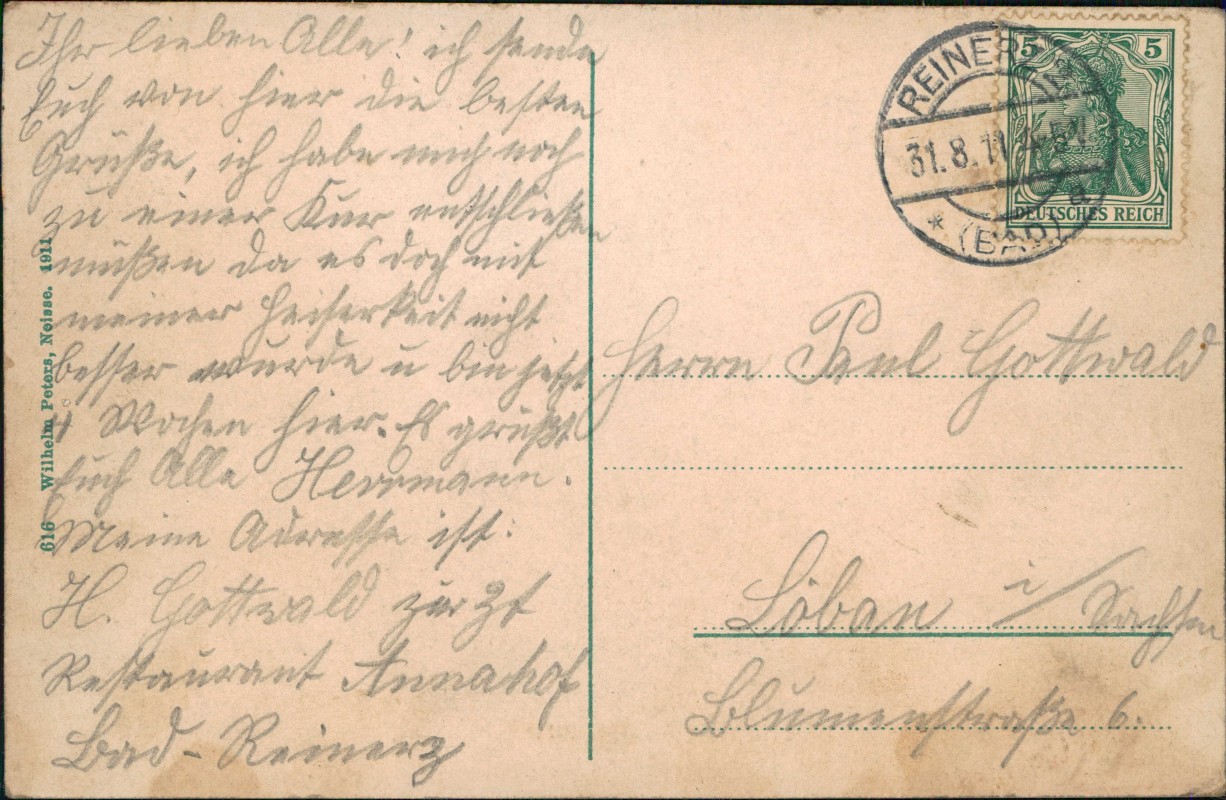 Ihr lieben Alle! ich sende
Euch von hier die besten
Grüße, ich habe mich noch
zu einer Kur entschließen
müßen da es doch mit
meiner Heiserkeit nicht
besser wurde u bin jetzt
4 Wochen hier. Es grüßt
Euch Alle Herrmann.
Meine Adresse ist:
H. Gottwald zur Zt
Restaurant Annahof
Bad-Reinerz
616 Wilhelm Peters, Neisse. 1911
REINERZ
31.8.11
* (BAD) a
5 5
DEUTSCHES REICH
Herrn Paul Gottwald
Löbau i/Sachsen
Blumenstraße 6.